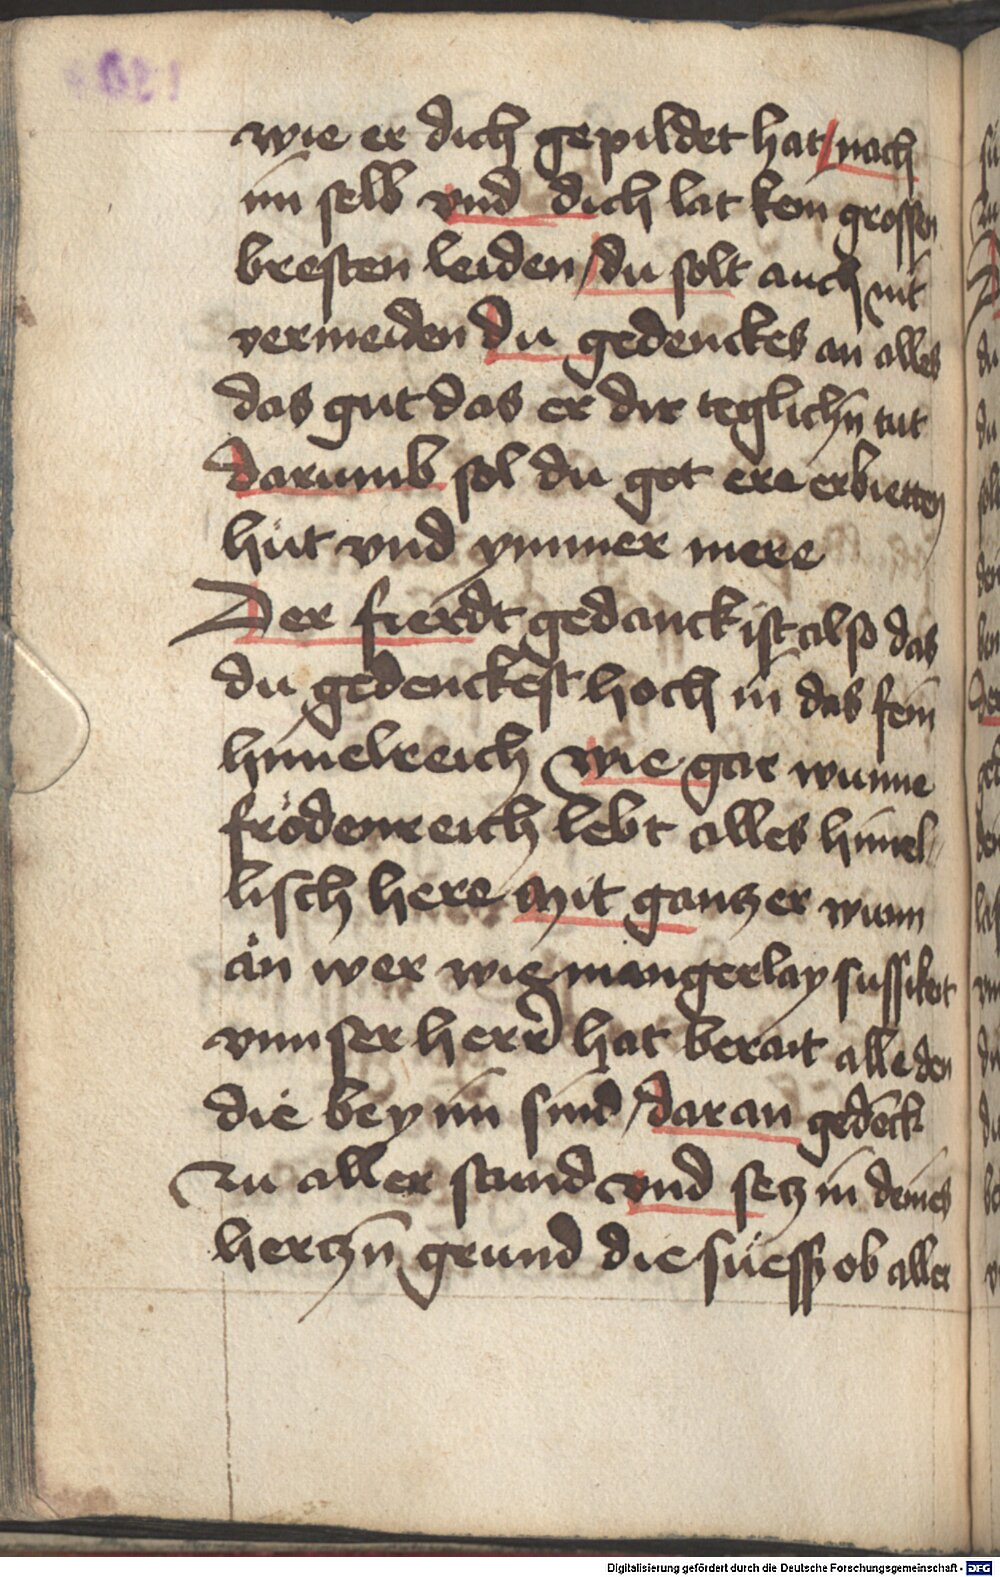 wie er dich gepildet hat / nach
im selb vnd dich lat kein grossen
bresten leiden / du solt auch nit
vermeiden du gedenckes an alles
das gut das er dir teglichn̄ tut
darumb sol du got ere erbietten
hüt vnd ymmer mere
Der fierdt gedanck ist also das
du gedenckest hoch in das fein
himelreich wie gar wunne
frödenreich lebt alles himel=
lisch here Mit gantzer wunn
ăn wer wie mangerlay sussikeit
vnnser herr hat berait alle den
die bey im sind / daran gedēck
zu aller stund vnd setz in deines
hertzn̄ grund die süessz ob aller
Digitalisierung gefördert durch die Deutsche Forschungsgemeinschaft - DFG